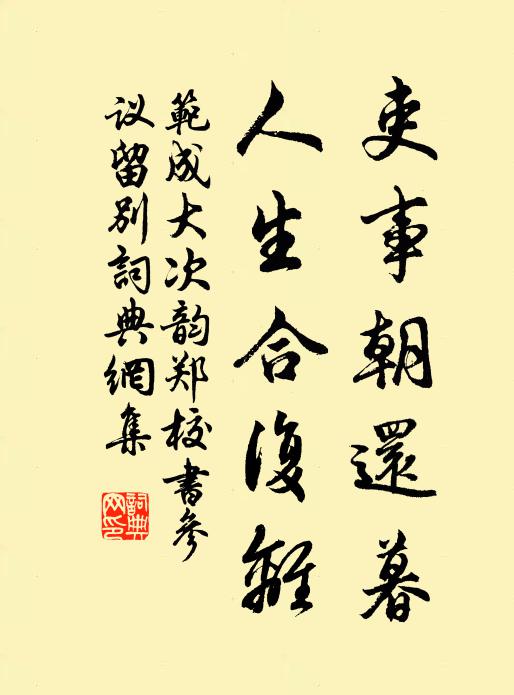 吏事朝還暮
人生合復離
範成大次韵郑校書參
议留别詞典網集
詞典网印